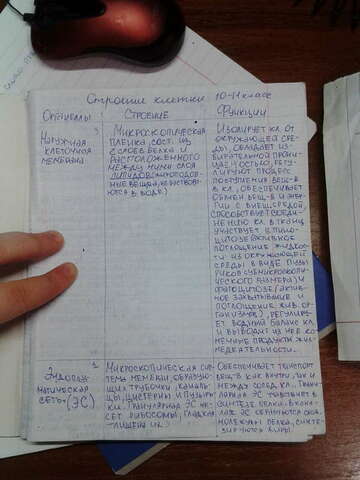 Строение клетки 10-11 класс
Органеллы
Строение
Функции
Наружная
клеточная
мембрана
Микроскопическая
пленка, сост. из
2 слоев белка и
расположенного
между ними слоя
липидов (жироподоб-
ные вещ-ва, не раствор-
яются в воде.)
Изолирует кл. от
окружающей сре-
ды, обладает из-
бирательной прони-
цаемостью, регу-
лируют процесс
поступления вещ-в
в кл.; обеспечивает
обмен вещ-в и энер-
гии с внеш. средой,
способствует соеди-
нению кл. в ткани,
участвует в пино-
цитозе (активное
поглощение жидкос-
ти из окружающей
среды в виде пузы-
рьков субмикроско-
пического размера) и
фагоцитозе (актив-
ное захватывание и
поглощение жив. ор-
ганизмов), регулирует
водный баланс кл.
и выводит из неё ко-
нечные продукты жиз-
недеятельности.
Эндоплаз-
матическая
сеть (ЭС)
Микроскопическая сис-
тема мембран, образую-
щих трубочки, каналь-
цы, цистерны и пузырьки
кл. Гранулярная ЭС не-
сет рибосомы, гладкая
лишена их.
Обеспечивает транспорт
вещ-в как внутри, так и
между сосед. кл. Грану-
лярная ЭС участвует в
синтезе белка. В канал-
ах ЭС
молекулы белка, синте-
зируются жиры.